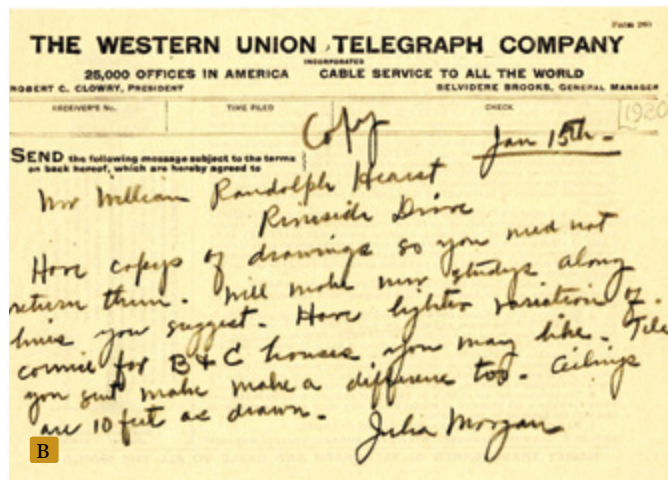 Form 260
THE WESTERN UNION TELEGRAPH COMPANY
INCORPORATED
25,000 OFFICES IN AMERICA CABLE SERVICE TO ALL THE WORLD
ROBERT C. CLOWRY, PRESIDENT BELVIDERE BROOKS, GENERAL MANAGER
RECEIVER'S No. TIME FILED CHECK
[1920
Copy
Jan 15th -
SEND the following message subject to the terms
on back hereof, which are hereby agreed to
Mr William Randolph Hearst
Riverside Drive
Have copys of drawings so you need not
return them. Will make new studys along
lines you suggest. Have lighter variation of
cornice for B & C houses you may like. Tile
you sent make make a difference too. Ceilings
are 10 feet as drawn.
Julia Morgan
B